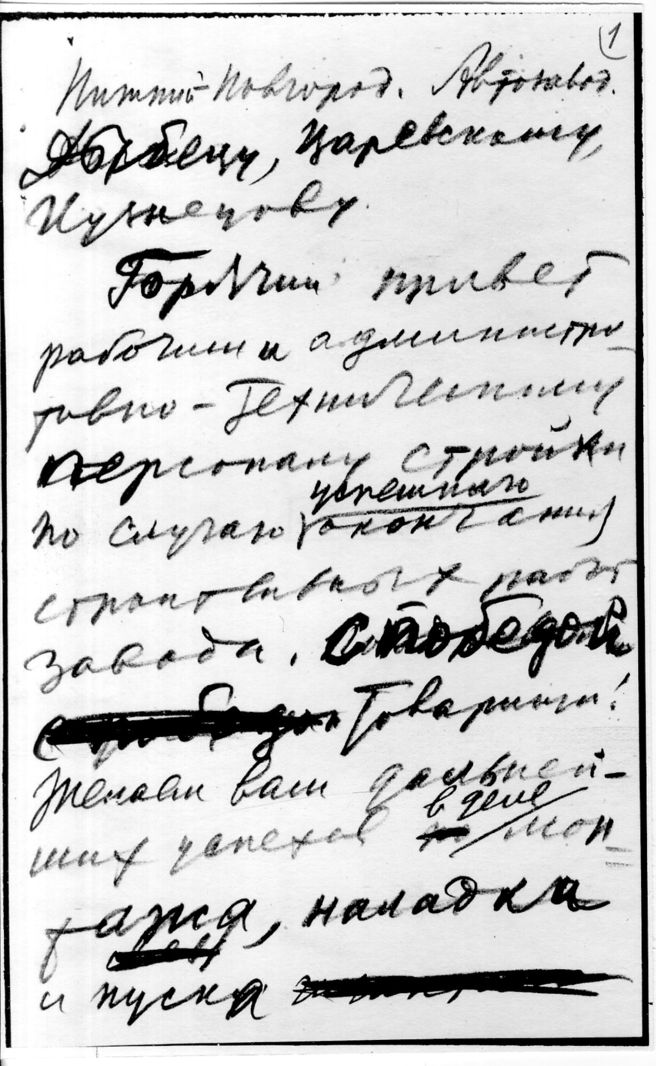 1
Нижний-Новгород. Автозавод.
Дыбецу, Царевскому,
Кузнецову.
Горячий привет
рабочим и администра-
тивно-техническому
персоналу стройки
успешного
по случаю окончания
строительных работ
завода. С победой
с победой Товарищи!
Желаем вам дальней-
в деле
ших успехов мон-
тажа, наладка
и пуска